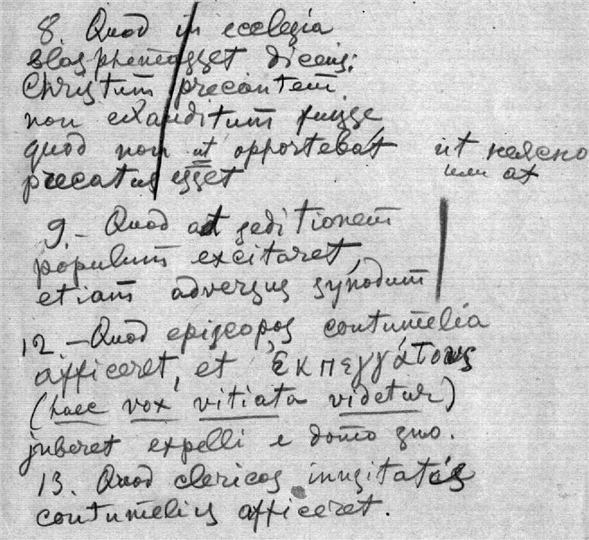 8. Quod in ecclesia
blasphemasset dicens:
Christum precantem
non exauditum fuisse
quod non ut opportebat ut неясно
precatus esset или at
9.- Quod ad seditionem
populum excitaret
etiam adversus synodum
12.- Quod episcopos contumelia
afficeret, et ἐκπεγγάτους
(haec vox vitiata videtur)
juberet expelli e domo suo.
13. Quod clericos inusitatis
contumeliis afficeret.